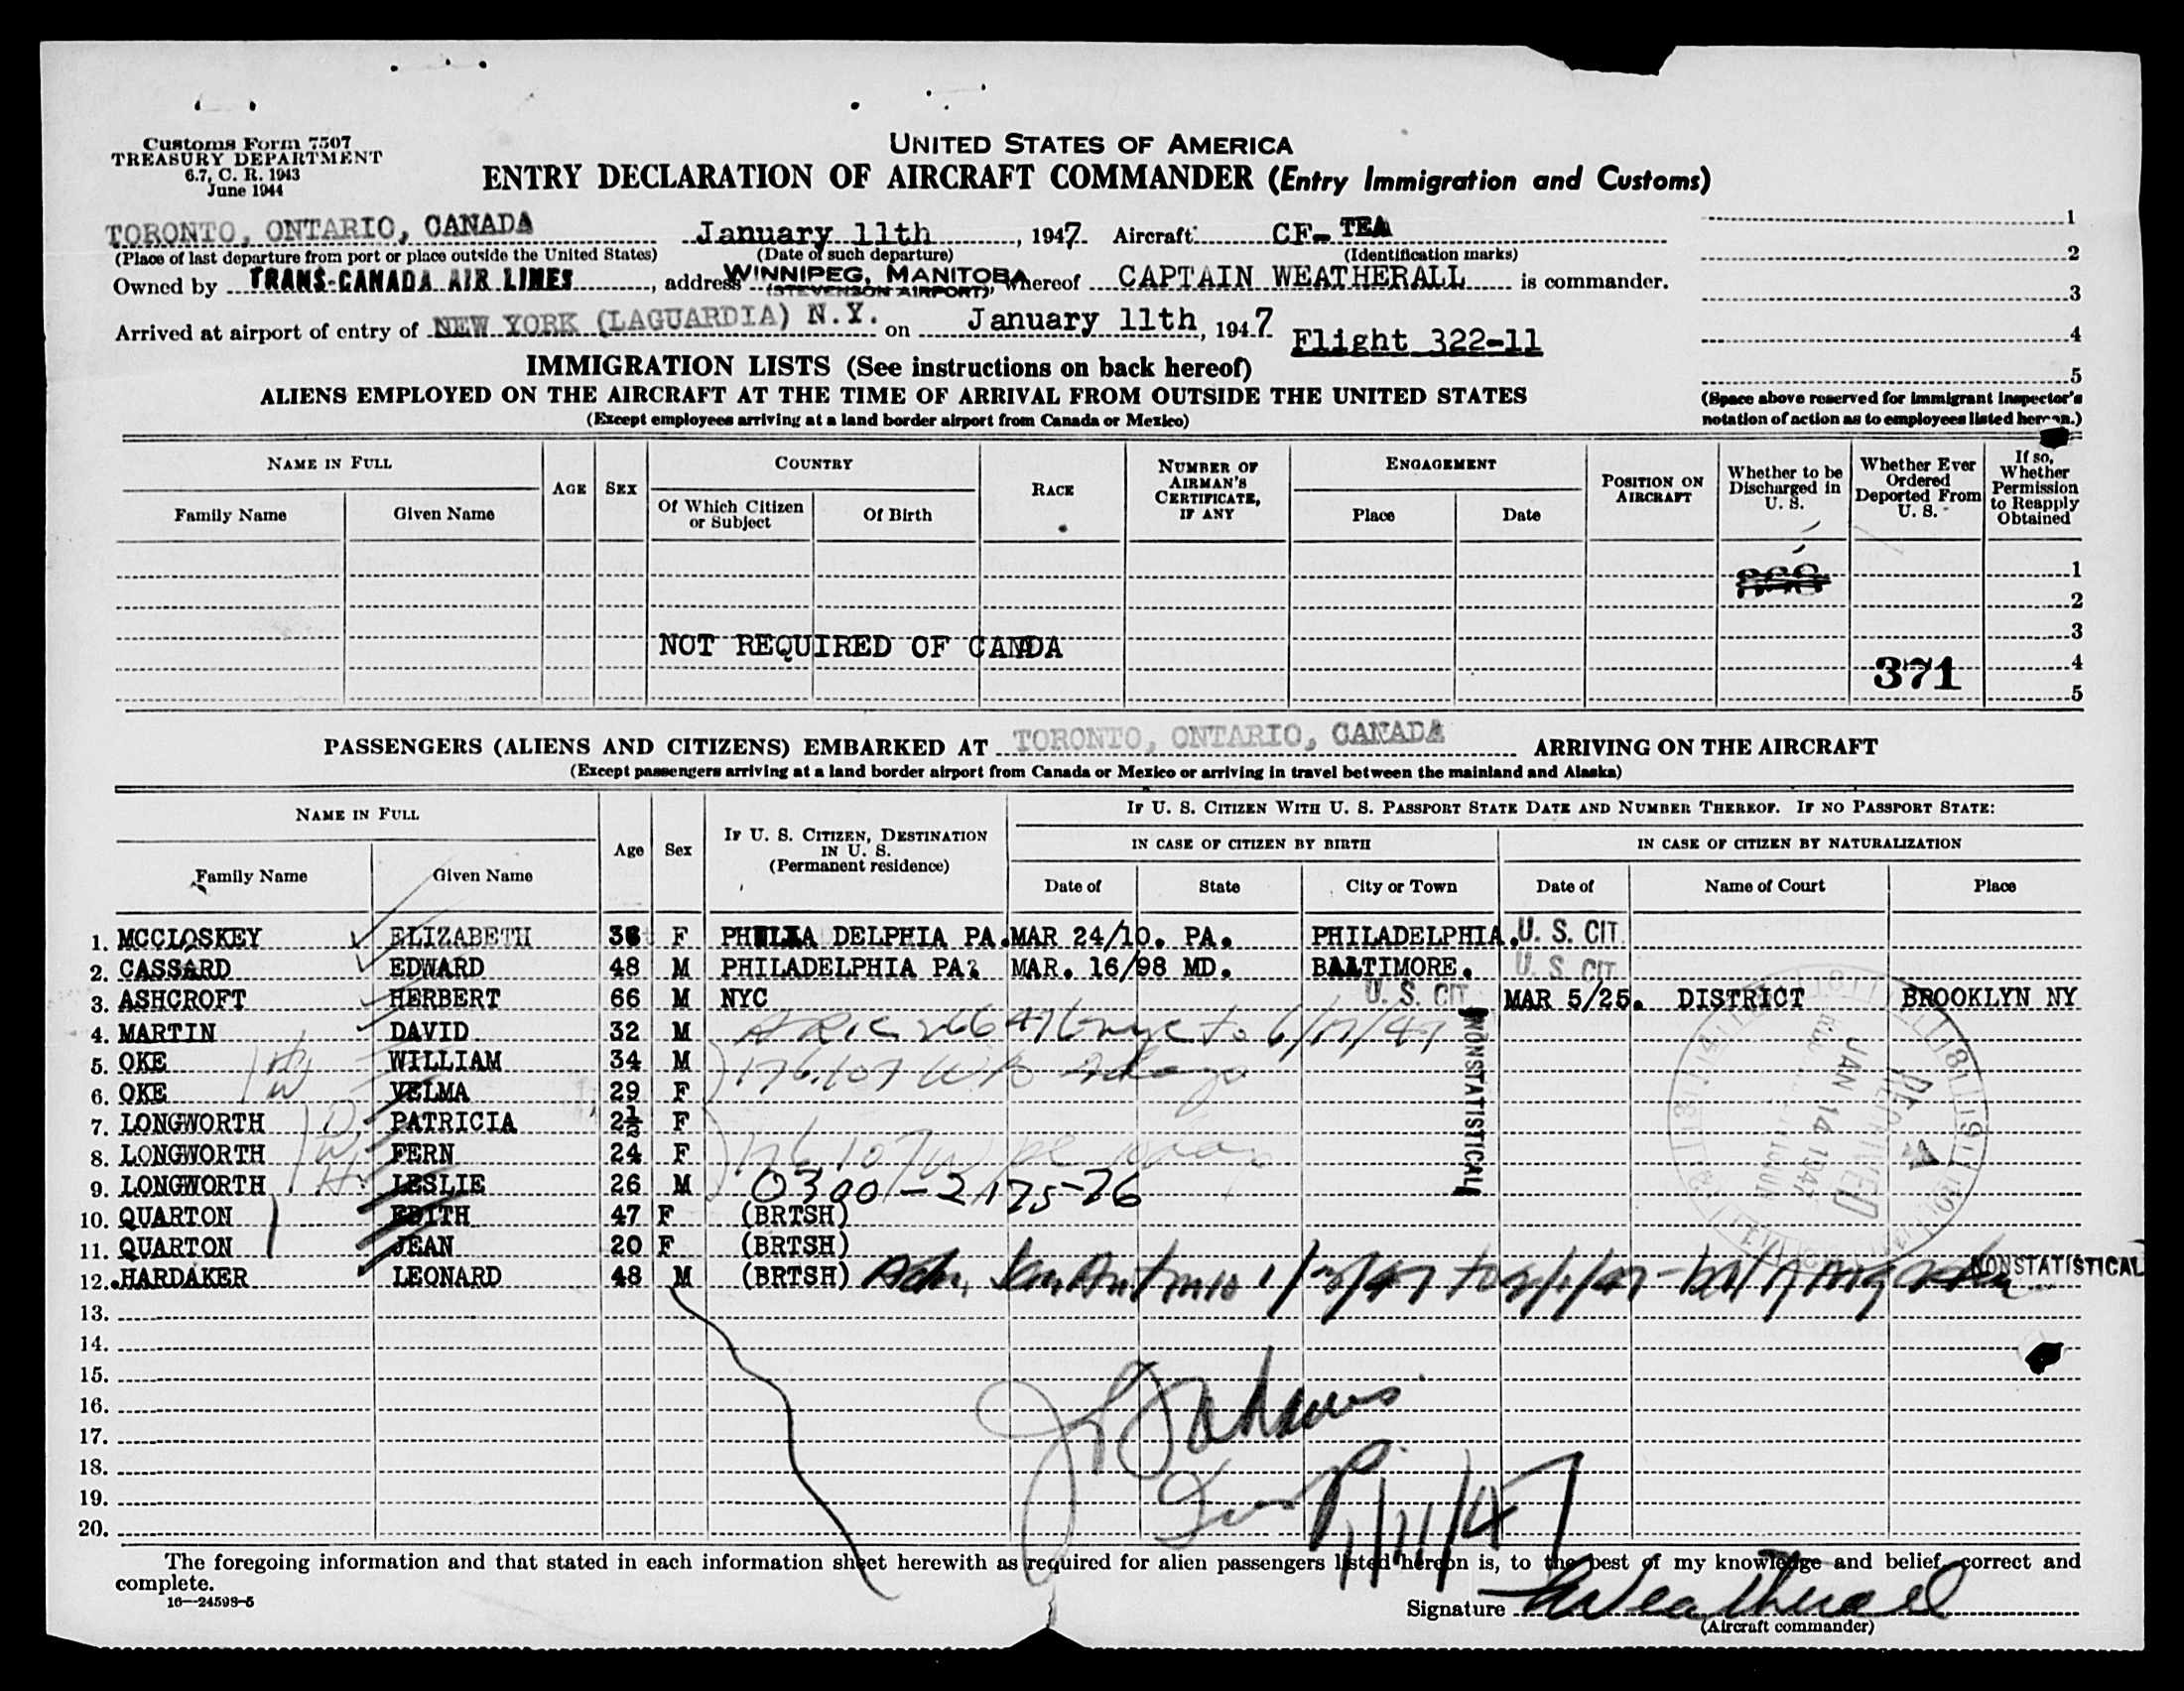 Customs Form 7507
TREASURY DEPARTMENT
6.7, C. R. 1943
June 1944
UNITED STATES OF AMERICA
ENTRY DECLARATION OF AIRCRAFT COMMANDER (Entry Immigration and Customs)
TORONTO, ONTARIO, CANADA January 11th, 1947. Aircraft CF- TEA
(Place of last departure from port or place outside the United States) (Date of such departure) (Identification marks)
Owned by TRANS-CANADA AIR LINES, address WINNIPEG, MANITOBA (STEVENSON AIRPORT), whereof CAPTAIN WEATHERALL is commander.
Arrived at airport of entry of NEW YORK (LAGUARDIA) N.Y. on January 11th, 1947 Flight 322-11
1
2
3
4
5
(Space above reserved for immigrant inspector's notation of action as to employees listed hereon.)
IMMIGRATION LISTS (See instructions on back hereof)
ALIENS EMPLOYED ON THE AIRCRAFT AT THE TIME OF ARRIVAL FROM OUTSIDE THE UNITED STATES
(Except employees arriving at a land border airport from Canada or Mexico)
NAME IN FULL
Family Name Given Name
AGE SEX
COUNTRY
Of Which Citizen or Subject Of Birth
RACE
NUMBER OF AIRMAN'S CERTIFICATE, IF ANY
ENGAGEMENT
Place Date
POSITION ON AIRCRAFT
Whether to be Discharged in U. S.
Whether Ever Ordered Deported From U. S.
If so, Whether Permission to Reapply Obtained
1
2
3
NOT REQUIRED OF CANADA
371
4
5
PASSENGERS (ALIENS AND CITIZENS) EMBARKED AT TORONTO, ONTARIO, CANADA ARRIVING ON THE AIRCRAFT
(Except passengers arriving at a land border airport from Canada or Mexico or arriving in travel between the mainland and Alaska)
NAME IN FULL
Family Name Given Name
Age Sex
IF U. S. CITIZEN, DESTINATION IN U. S. (Permanent residence)
IF U. S. CITIZEN WITH U. S. PASSPORT STATE DATE AND NUMBER THEREOF. IF NO PASSPORT STATE:
IN CASE OF CITIZEN BY BIRTH IN CASE OF CITIZEN BY NATURALIZATION
Date of State City or Town Date of Name of Court Place
1. MCCLOSKEY ELIZABETH 36 F PHILA DELPHIA PA. MAR 24/10. PA. PHILADELPHIA. U. S. CIT
2. CASSARD EDWARD 48 M PHILADELPHIA PA? MAR. 16/98 MD. BALTIMORE. U. S. CIT
3. ASHCROFT HERBERT 66 M NYC U. S. CIT MAR 5/25. DISTRICT BROOKLYN NY
4. MARTIN DAVID 32 M 6/11/47
5. OKE WILLIAM 34 M 176.107
6. OKE VELMA 29 F
7. LONGWORTH PATRICIA 2½ F
8. LONGWORTH FERN 24 F 176.107
9. LONGWORTH LESLIE 26 M 0300-2175-76
10. QUARTON EDITH 47 F (BRTSH)
11. QUARTON JEAN 20 F (BRTSH)
12. HARDAKER LEONARD 48 M (BRTSH) Adm.
NONSTATISTICAL
NONSTATISTICAL
RECEIVED
JAN 14 1947
13.
14.
15.
16.
17.
18.
19.
20.
1/11/47
The foregoing information and that stated in each information sheet herewith as required for alien passengers listed hereon is, to the best of my knowledge and belief, correct and
complete.
16—24598-5
Signature Weatherall
(Aircraft commander)